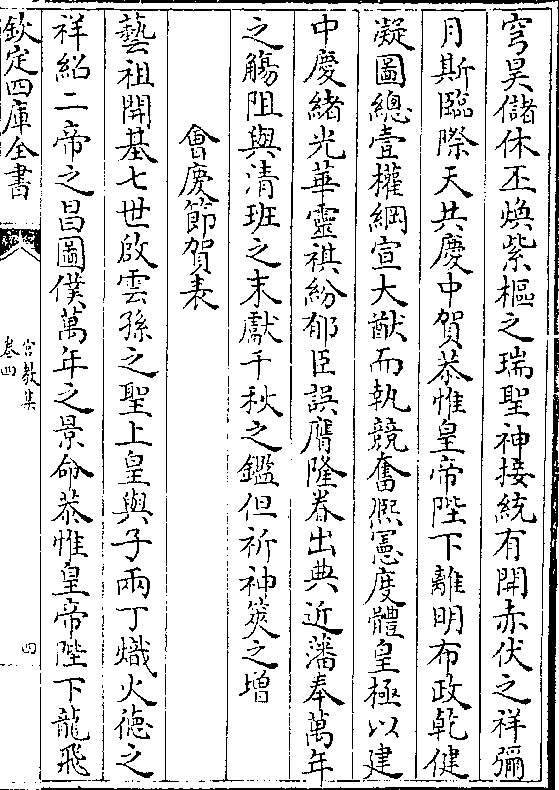 穹昊儲休丕煥紫樞之瑞聖神接統有開赤伏之祥彌
月斯臨際天共慶中賀恭惟皇帝陛下離明布政乾健
凝圖總壹權綱宣大猷而執競奮熙憲度體皇極以建
中慶緒光華靈祺紛郁臣誤膺隆眷出典近藩奉萬年
之觴阻與清班之末獻千秋之鑑但祈神筴之增
會慶節賀表
藝祖開基七世啟雲孫之聖上皇與子兩丁熾火徳之
祥紹二帝之昌圖僕萬年之景命恭惟皇帝陛下龍飛
欽定四庫全書
宫教集
卷四
四